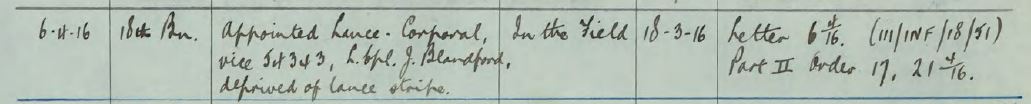 6-4-16 18th Bn. Appointed Lance-Corporal, In the Field 18-3-16 Letter 6 4/16. (III/INF/18/51)
vice 54343, L.Cpl. J. Blandford, Part II Order 17, 21 4/16.
deprived of lance stripe.